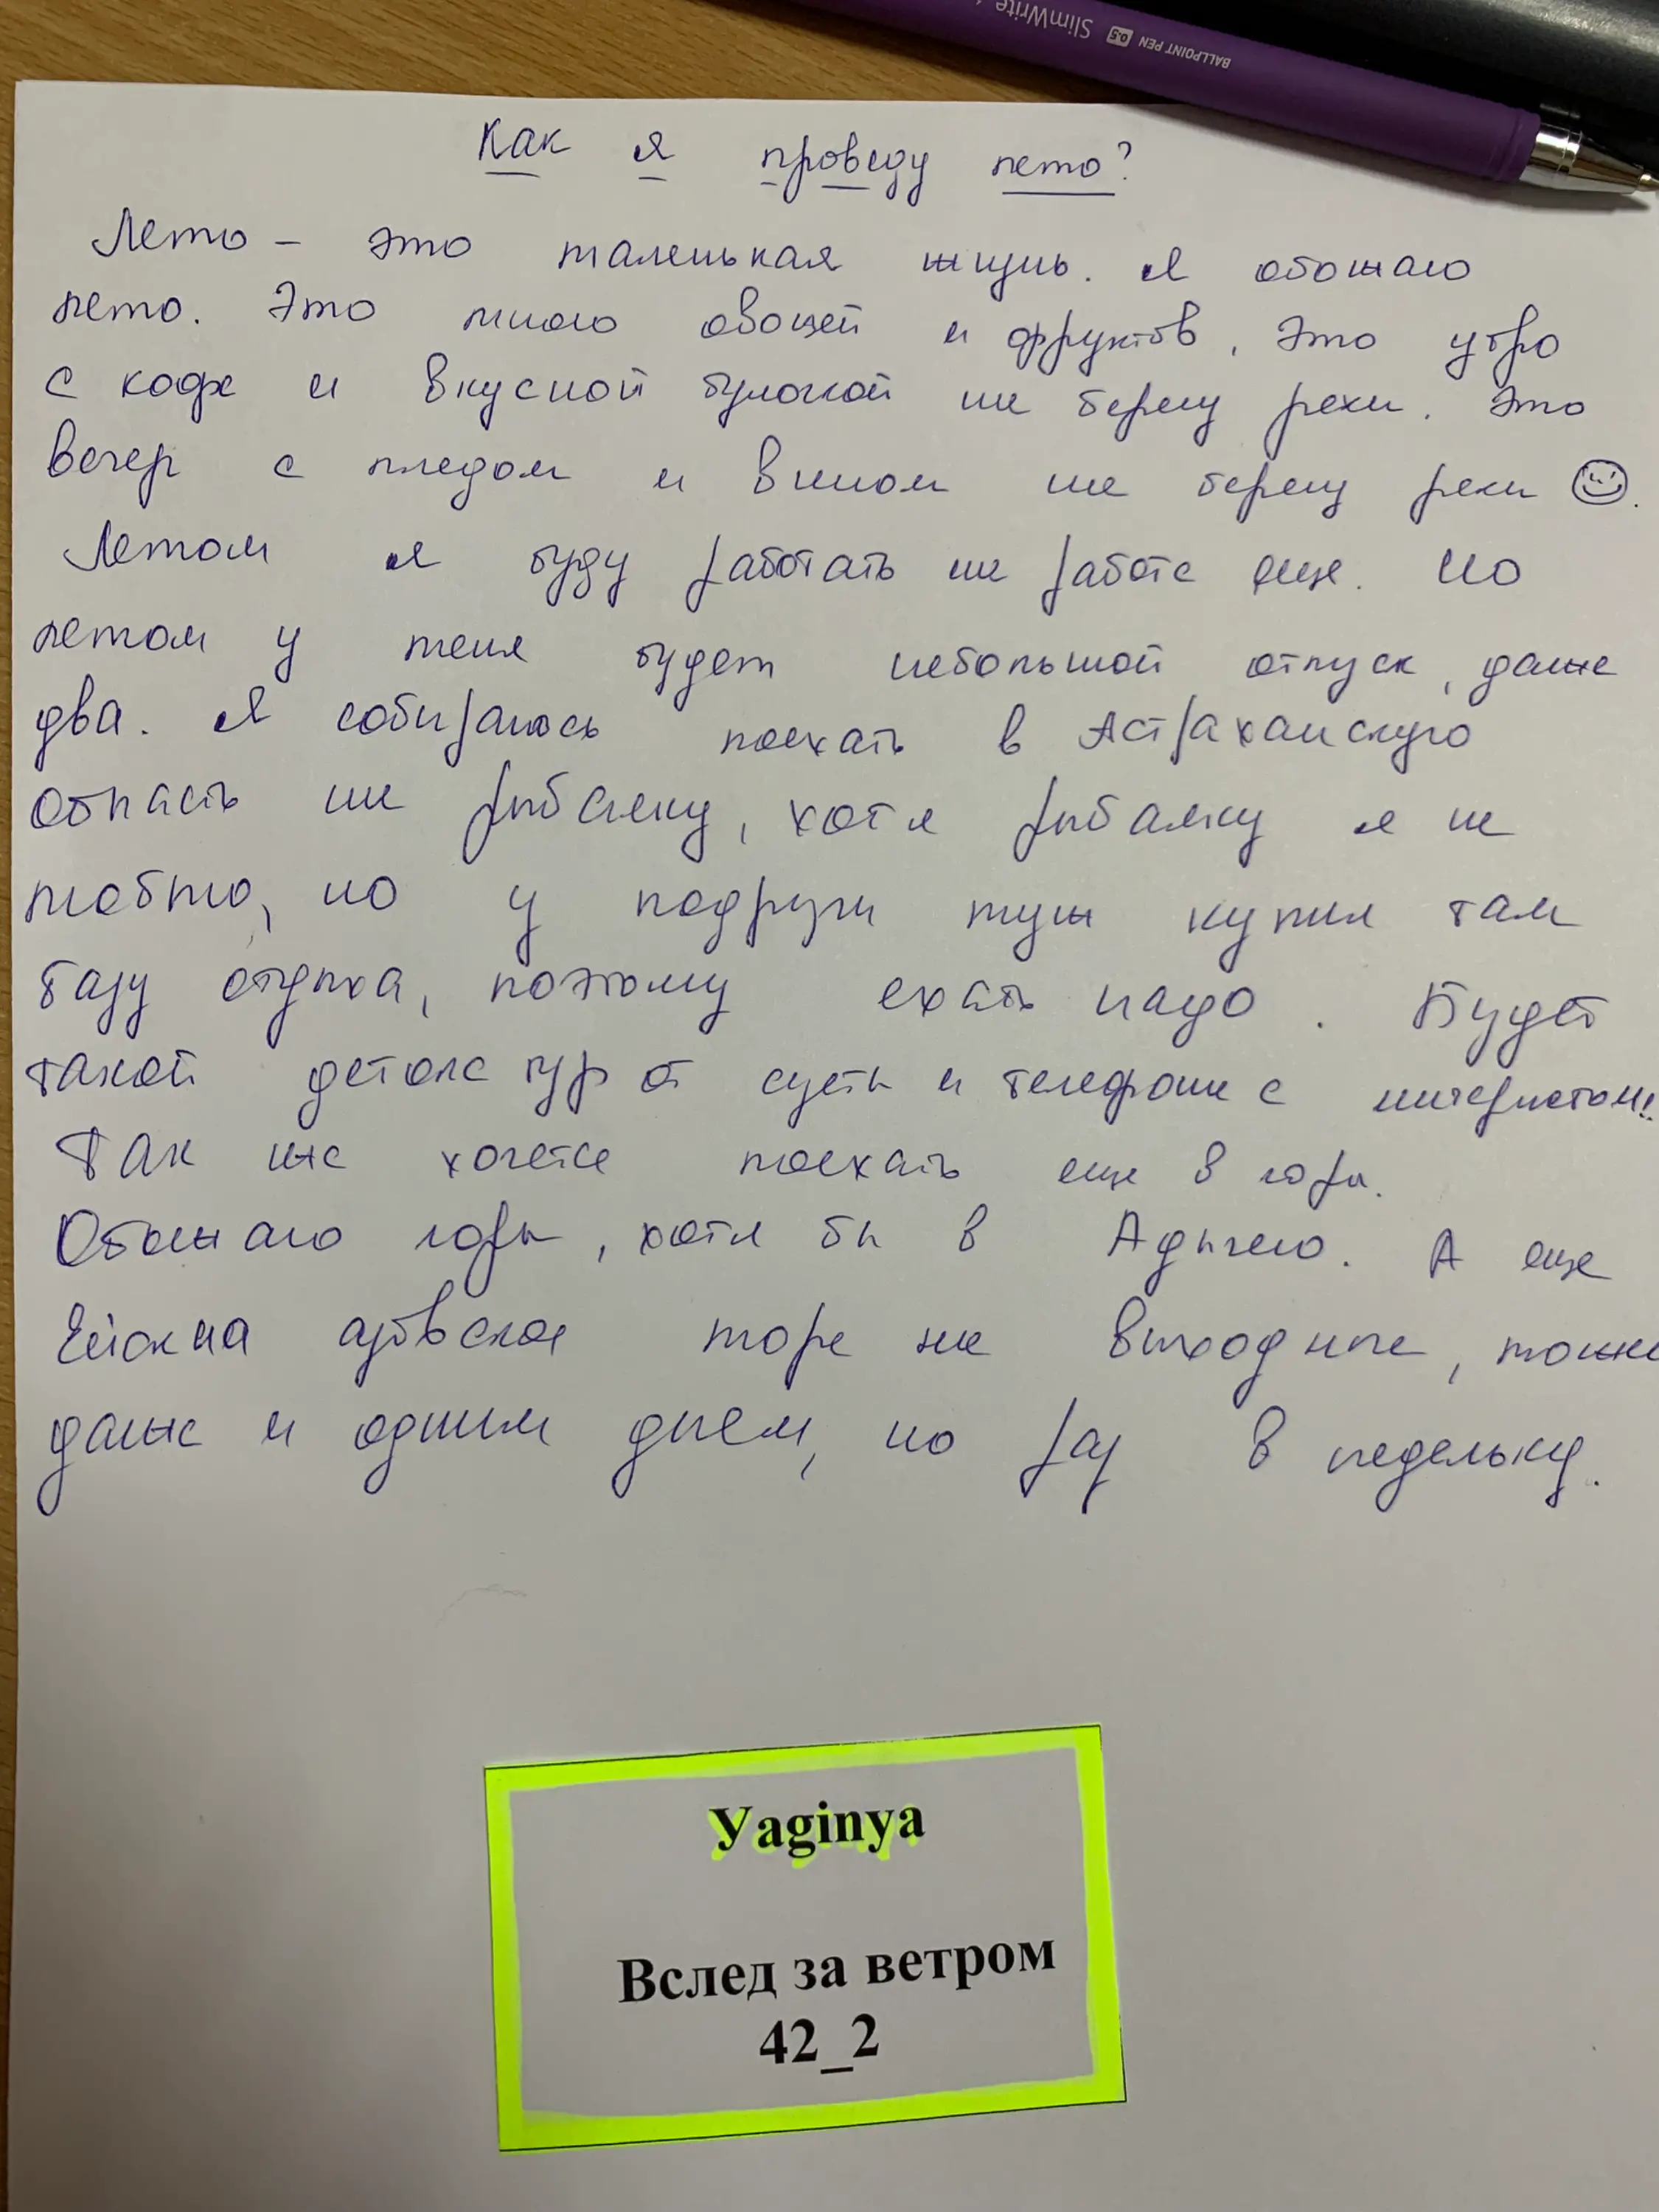 SlimWrite 0.5 BALLPOINT PEN
Как я проведу лето?
Лето – это маленькая жизнь. Я обожаю
лето. Это много овощей и фруктов. Это утро
с кофе и вкусной булочкой на берегу реки. Это
вечер с пледом и вином на берегу реки ☺.
Летом я буду работать на работе еще. Но
летом у меня будет небольшой отпуск, даже
два. Я собираюсь поехать в Астраханскую
область на рыбалку, хотя рыбалку я не
люблю, но у подруги муж купил там
базу отдыха, поэтому ехать надо. Будет
такой детокс тур от суеты и телефона с интернетом!!
Так же хочется поехать еще в горы.
Обожаю горы, хотя бы в Адыгею. А еще
Ейск на азовское море на выходные, можно
даже и одним днем, но раз в недельку.
Yaginya
Вслед за ветром
42_2